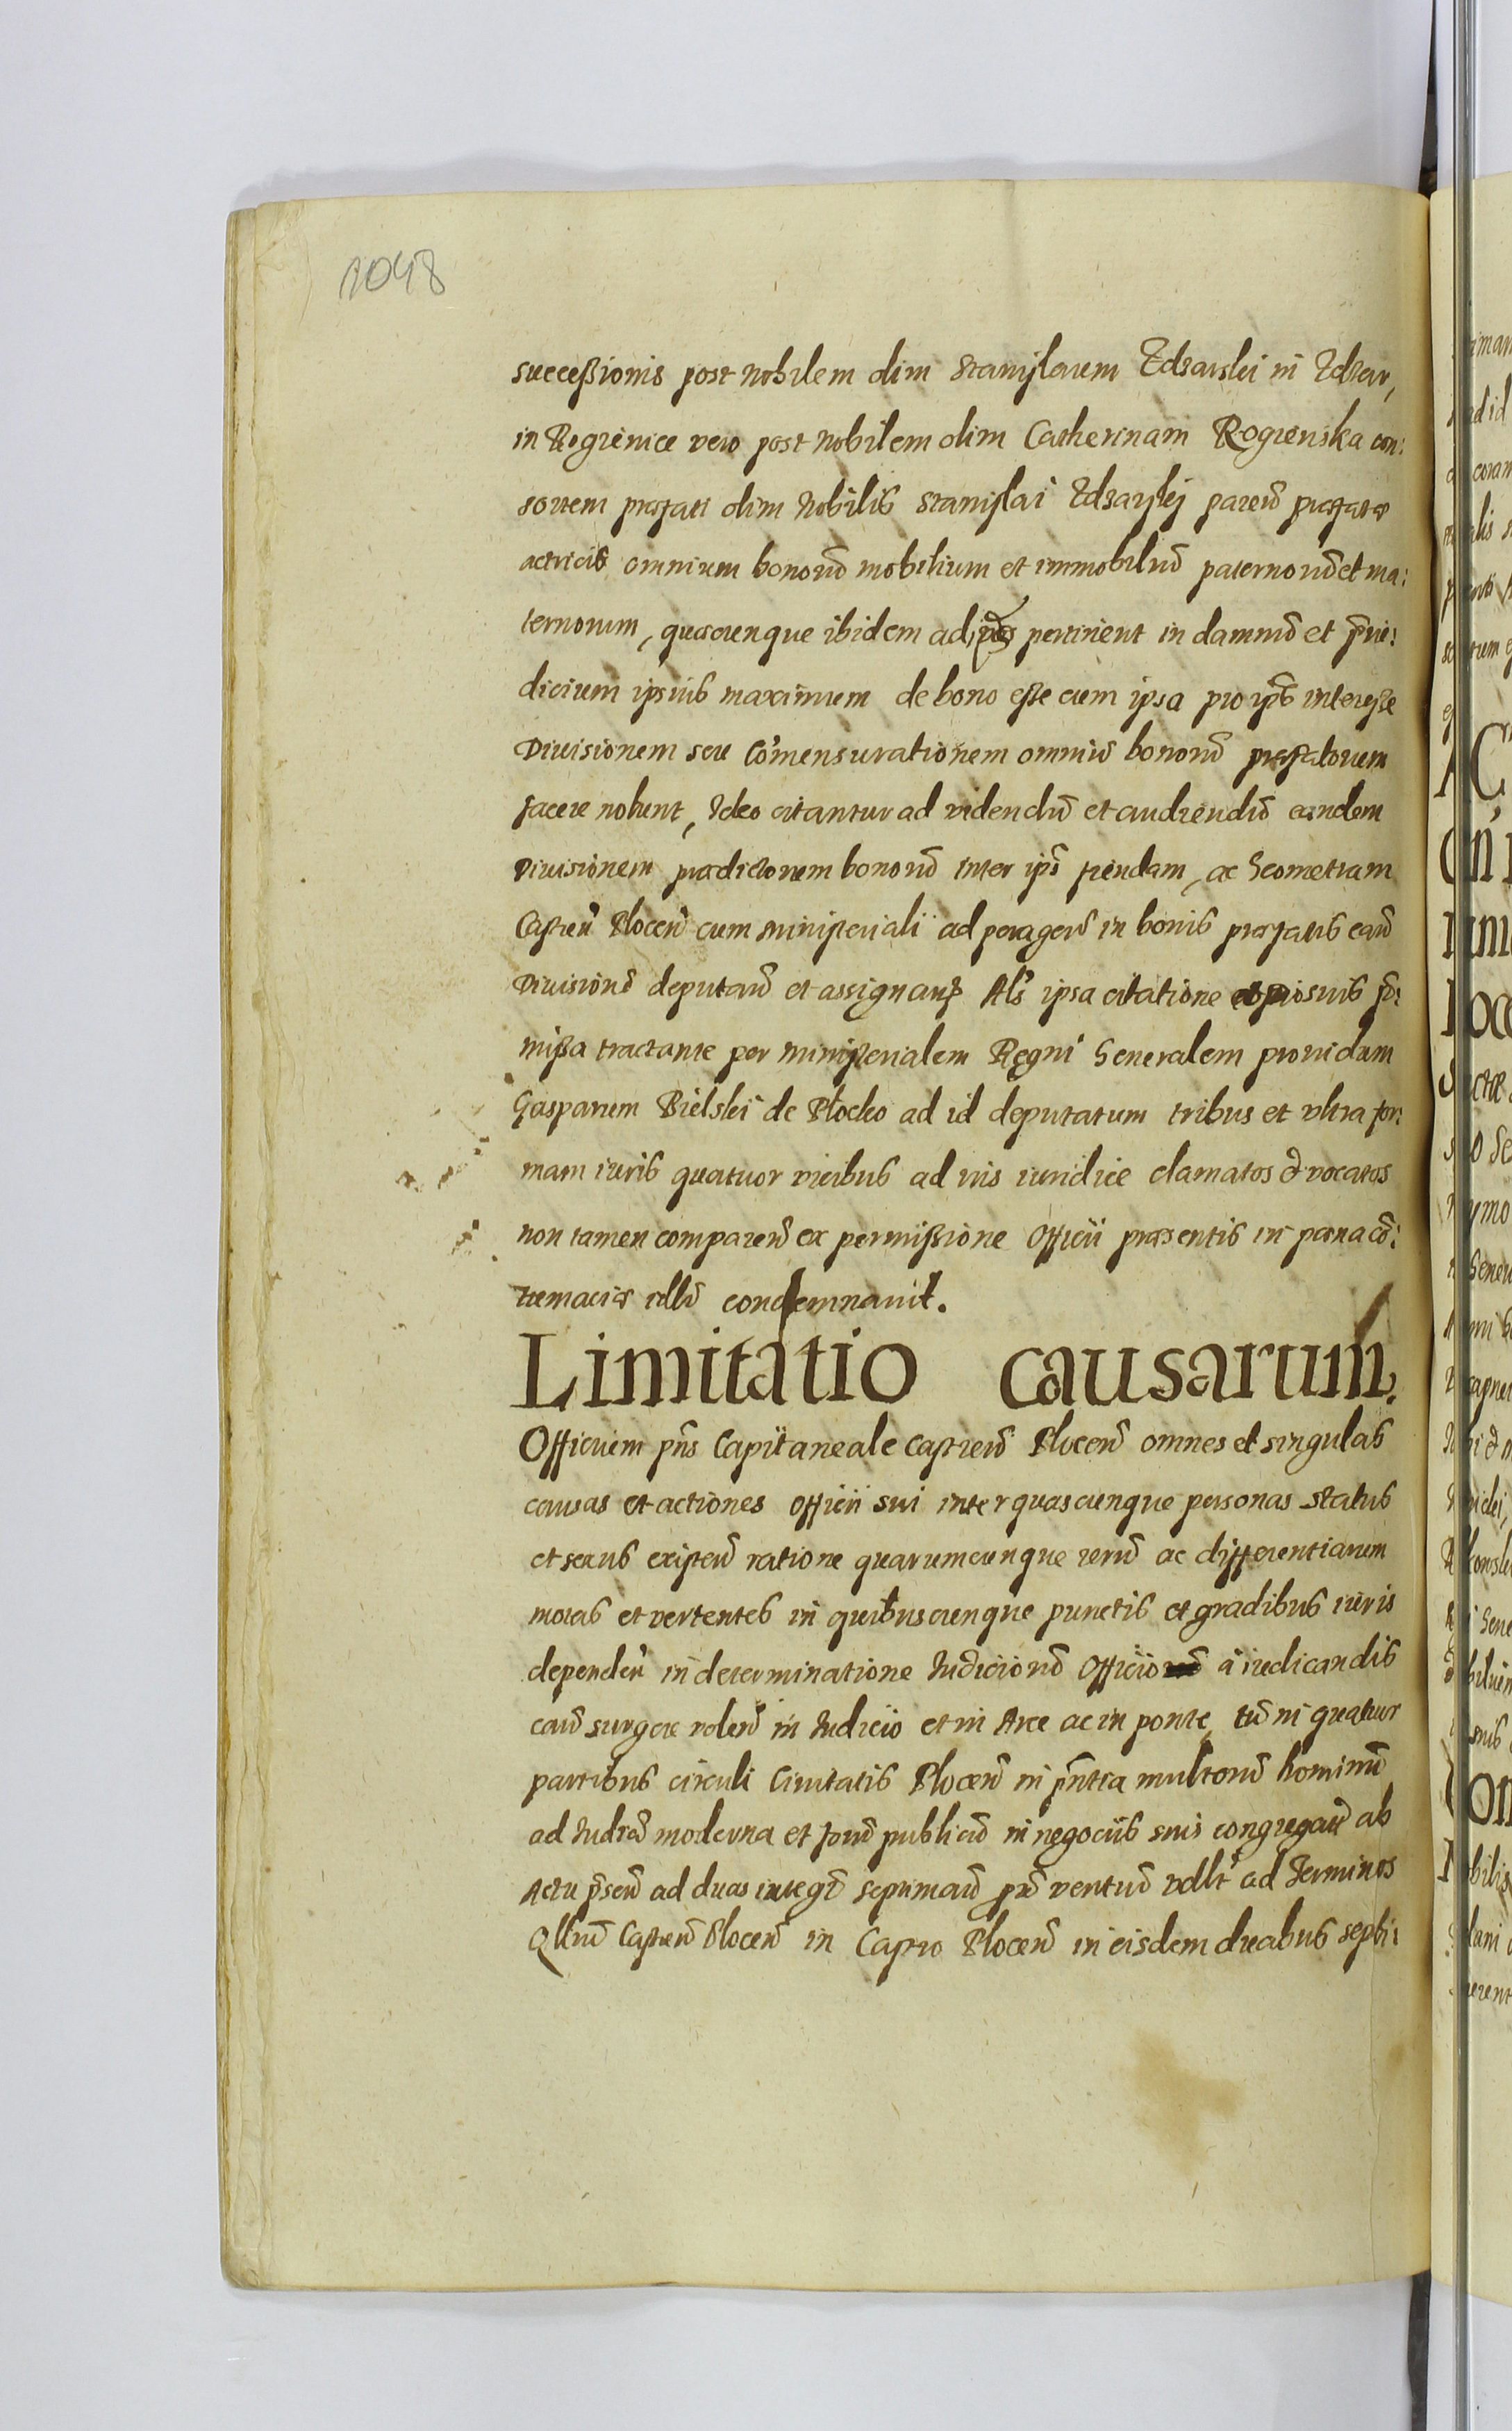 1048
successionis post Nobilem olim Stanislaum Zdzarski in Zdzar,
in Rogienice vero post Nobilem olim Catherinam Rogienska con:
sortem præfati olim Nobilis Stanislai Zdzarskj paren̄ præfatæ
actricis omnium bonorū mobilium et immobiliū paternorū et ma:
ternorum, quæcunque ibidem ad pertinent in damnū et p̄iu:
dicium ipsius maximum de bono esse cum ipsa pro ips̄ interesse
Diuisionem seu Cōmensurationem omniū bonorū præfatorum
facere nolunt, Ideo citantur ad videndū et audiendū eandem
Diuisionem prædictorum bonorū inter ips̄ fiendam, ac Geometram
Castren̄ Plocen̄ cum Ministeriali ad peragen̄ in bonis præfatis ean̄
Diuisionē deputan̄ et assignan̄ Al̄s ipsa citatione p̄:
missa tractante per Ministerialem Regni Generalem prouidum
Gasparum Bielski de Płocko ad id deputatum tribus et vltra for:
mam iuris quatuor vicibus ad iūs iuridice clamatos & vocatos
non tamen comparen̄ ex permissione Officii præsentis in pœna cō:
tumaciæ condemnauit.
Limitatio causarum.
Officium p̄ns Capitaneale Castren̄ Plocen̄ omnes et singulas
causas et actiones officii sui inter quascunque personas status
et sexus existen̄ ratione quarumcunque rerū ac differentiarum
motas et vertentes in quibuscunque punctis et gradibus iuris
dependen̄ in determinatione Iudiciorū Officii a iudicandis
caū surgere volen̄ in Iudicio et in Arce ac in ponte, tū in quatuor
partibus circuli Ciuitatis Plocen̄ in p̄ntia multorū hominū
ad Iudica moderna et forū publicū in negociis suis congregan̄ ab
Actu p̄sen̄ ad duas integr̄ septiman̄ ventur̄ ad Terminos
Q̄llrū Castren̄ Plocen̄ in Castro Plocen̄ in eisdem duabus septi: